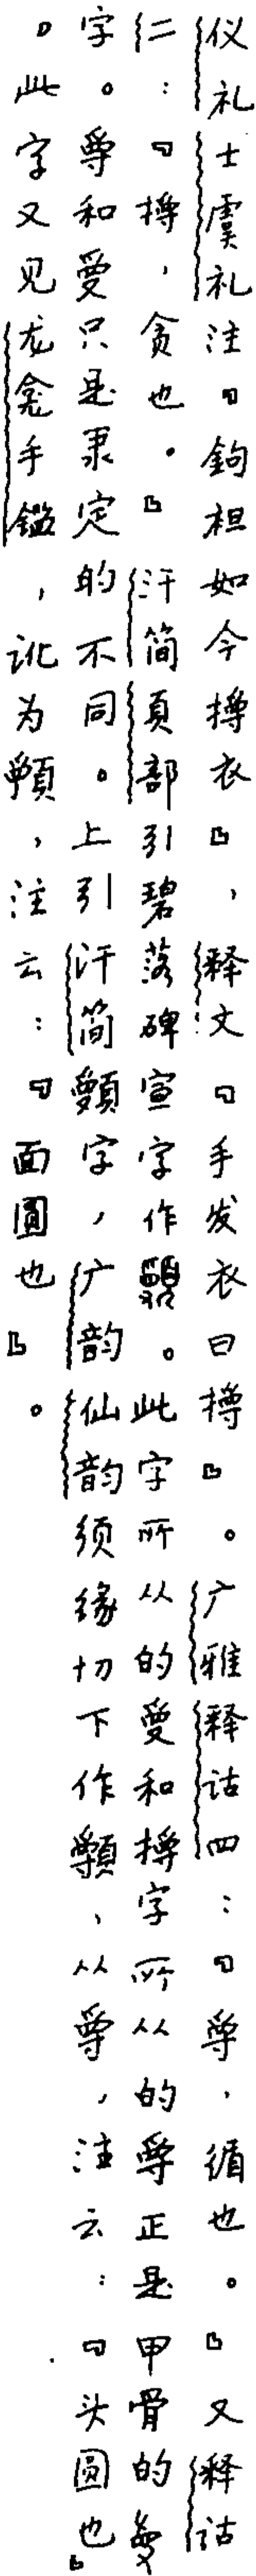 仪礼士虞礼注『钩袒如今㩢衣』，释文『手发衣曰㩢』。广雅释诂四：『㝵，循也。』又释诂
二：『㩢，贪也。』汗简頁部引碧落碑宣字作。此字所从的和㩢字所从的正是甲骨的
字。和只是隶定的不同。上引汗简字，广韵仙韵须缘切下作，从，注云：『头圆也』
。此字又见龙龛手鑑，讹为，注云：『面圓也』。